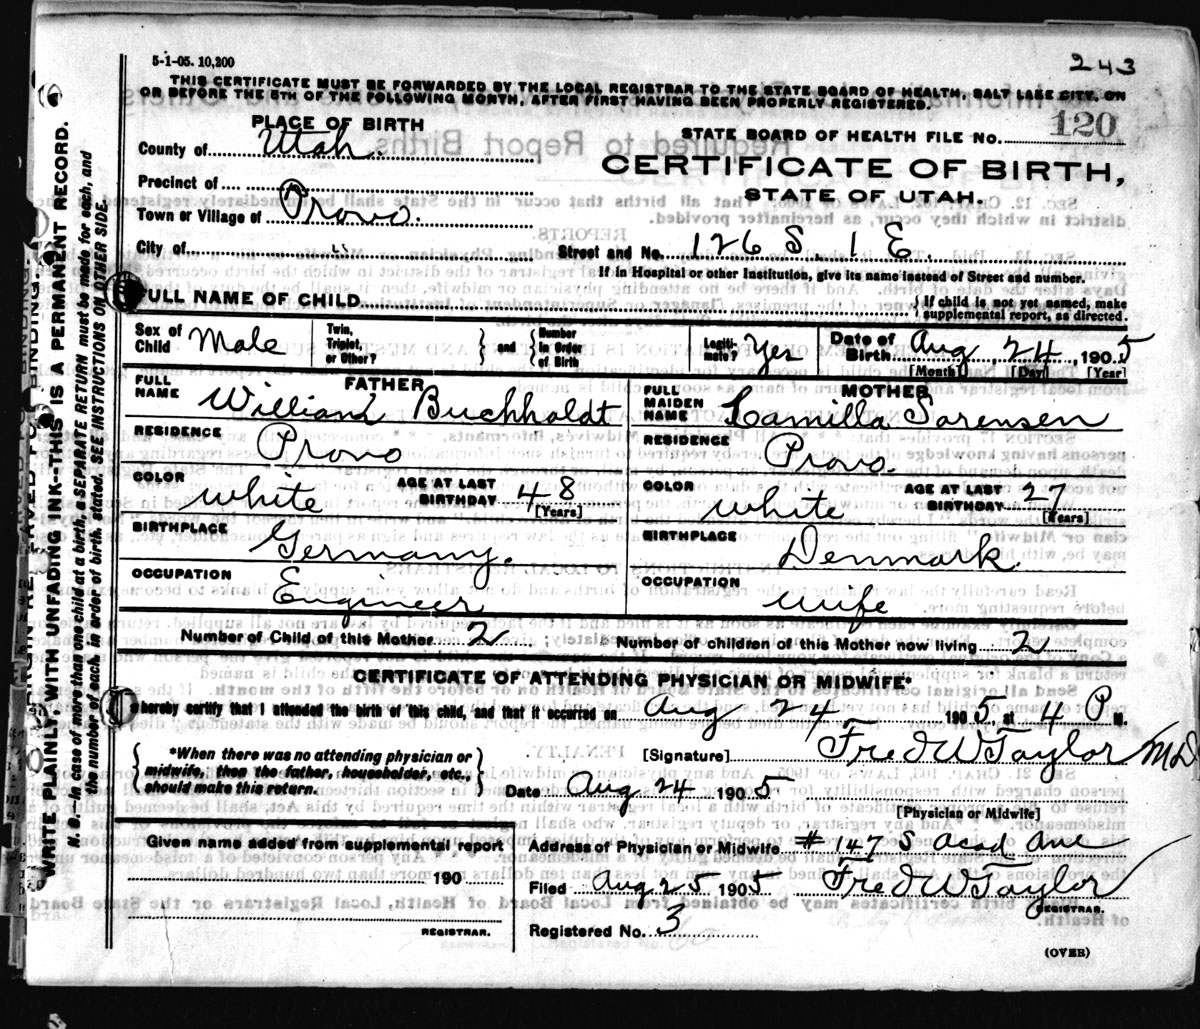 5-1-05. 10,200
243
THIS CERTIFICATE MUST BE FORWARDED BY THE LOCAL REGISTRAR TO THE STATE BOARD OF HEALTH, SALT LAKE CITY, ON
OR BEFORE THE 5TH OF THE FOLLOWING MONTH, AFTER FIRST HAVING BEEN PROPERLY REGISTERED.
PLACE OF BIRTH
STATE BOARD OF HEALTH FILE No. 120
County of Utah.
CERTIFICATE OF BIRTH,
STATE OF UTAH.
Precinct of
Town or Village of Provo.
City of
Street and No. 126 S. 1 E.
If in Hospital or other Institution, give its name instead of Street and number.
FULL NAME OF CHILD
{ If child is not yet named, make
supplemental report, as directed.
Sex of Child Male
Twin, Triplet, or Other?
} and { Number in Order of Birth
Legiti- mate? Yes
Date of Birth Aug 24, 1905
[Month] [Day] [Year]
FATHER
FULL NAME William Buchholdt
RESIDENCE Provo
COLOR white
AGE AT LAST BIRTHDAY 48
[Years]
BIRTHPLACE Germany.
OCCUPATION Engineer
MOTHER
FULL MAIDEN NAME Camilla Sorensen
RESIDENCE Provo.
COLOR white
AGE AT LAST BIRTHDAY 27
[Years]
BIRTHPLACE Denmark.
OCCUPATION wife
Number of Child of this Mother 2
Number of children of this Mother now living 2
CERTIFICATE OF ATTENDING PHYSICIAN OR MIDWIFE*
I hereby certify that I attended the birth of this child, and that it occurred on Aug 24 1905, at 4 P M.
{ *When there was no attending physician or
midwife, then the father, householder, etc.,
should make this return. }
[Signature] Fred W Taylor MD
Date Aug 24 1905
[Physician or Midwife]
Given name added from supplemental report
190
REGISTRAR.
Address of Physician or Midwife #147 S Acad Ave
Filed Aug 25 1905 Fred W Taylor
REGISTRAR.
Registered No. 3
(OVER)
WRITE PLAINLY WITH UNFADING INK—THIS IS A PERMANENT RECORD.
N. B.—In case of more than one child at a birth, a SEPARATE RETURN must be made for each, and
the number of each, in order of birth, stated. SEE INSTRUCTIONS ON OTHER SIDE.